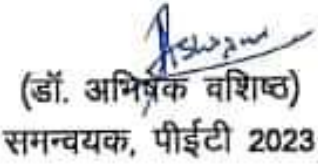 (डॉ. अभिषेक वशिष्ठ)
समन्वयक, पीईटी 2023